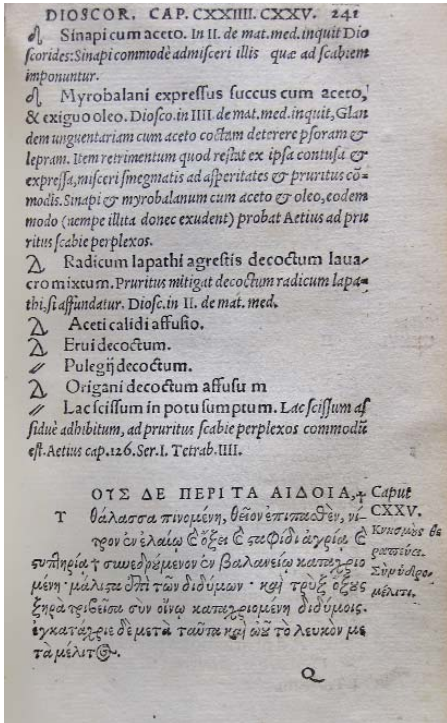 DIOSCOR. CAP. CXXIIII. CXXV. 241
Sinapi cum aceto. In II. de mat. med. inquit Dio
scorides: Sinapi commodè admisceri illis quæ ad scabiem
imponuntur.
Myrobalani expressus succus cum aceto,
& exiguo oleo. Diosco. in IIII. de mat. med. inquit, Glan
dem unguentariam cum aceto coctam deterere psoram &
lepram. Item retrimentum quod restat ex ipsa contusa &
expressa, misceri smegmatis ad asperitates & pruritus cō=
modis. Sinapi & myrobalanum cum aceto & oleo, eodem
modo (nempe illita donec exudent) probat Aetius ad pru
ritus scabie perplexos.
Radicum lapathi agrestis decoctum laua/
cro mixtum. Pruritus mitigat decoctum radicum lapa=
thi, si affundatur. Diosc. in II. de mat. med.
Aceti calidi affusio.
Erui decoctum.
Pulegij decoctum.
Origani decoctum affusu m
Lac scissum in potu sumptum. Lac scissum as
siduè adhibitum, ad pruritus scabie perplexos commodū
est. Aetius cap. 126. Ser. I. Tetrab. IIII.
ΟΥΣ ΔΕ ΠΕΡΙ ΤΑ ΑΙΔΟΙΑ, Caput
Τ θάλασσα πινομένη, θεῖον ἐπιπαθὲν, νί CXXV.
τρον ἐν ἐλαίῳ καὶ ὄξει καὶ σαφίδι ἀγρίᾳ καὶ Κνησμοὺς θε
συπηρίᾳ † συνεδρώμενον ἐν βαλανείῳ καταχριο ραπεύει.
μένη· μάλιστα ἐπὶ τῶν διδύμων· καὶ τρὺξ ὄξους
ξηρὰ τριβεῖσα σὺν οἴνῳ καταχριομένη διδύμοις. μέλιτι.
ἐγκατάχριε δὲ μετὰ ταῦτα καὶ ὠοῦ τὸ λευκὸν με
τὰ μέλιτος.
Q